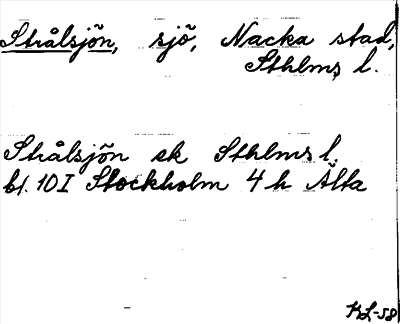 Strålsjön, sjö, Nacka stad,
Sthlms l.
Strålsjön ek Sthlms l.
bl. 10I Stockholm 4h Älta
KL-58